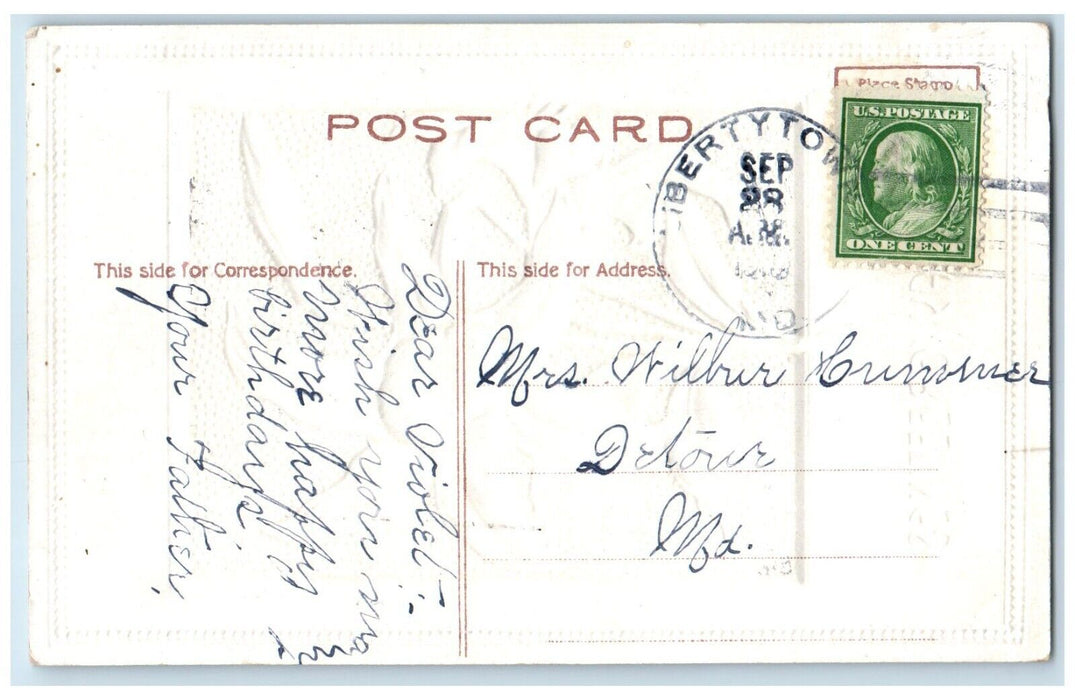 POST CARD
Place Stamp
U.S. POSTAGE
ONE CENT
LIBERTYTOWN
SEP
28
A.M.
MD
This side for Correspondence.
This side for Address.
Dear Violet:
Wish you many
more happy
birthdays.
Your Father,
Mrs. Wilbur Crummer
Detour
Md.